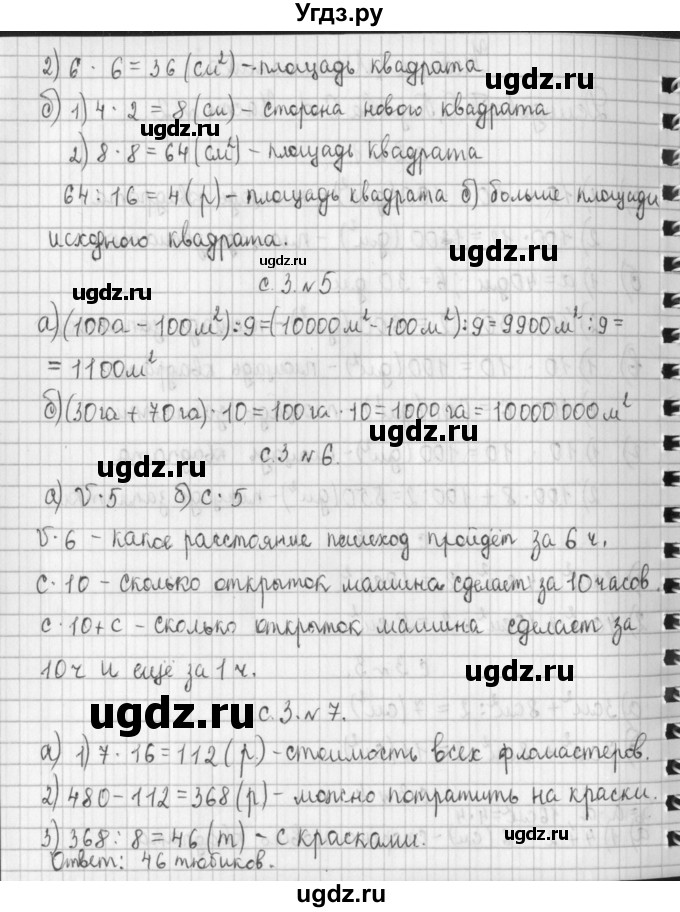 Угдз.ру
2) 6 · 6 = 36 (см²) – площадь квадрата
ugdz.ru
б) 1) 4 · 2 = 8 (см) – сторона нового квадрата
ugdz.ru
2) 8 · 8 = 64 (см²) – площадь квадрата
64 : 16 = 4 (р) – площадь квадрата б) больше площади
исходного квадрата.
ugdz.ru
ugdz.ru
с. 3. №5
ugdz.ru
а) (100а – 100м²) : 9 = (10000м² – 100м²) : 9 = 9900м² : 9 =
= 1100м²
б) (30га + 70га) · 10 = 100га · 10 = 1000га = 10000000м²
ugdz.ru
с. 3 №6.
ugdz.ru
а) V · 5 б) с · 5
ugdz.ru
V · 6 – какое расстояние пешеход пройдёт за 6 ч.
с · 10 – сколько открыток машина сделает за 10 часов.
ugdz.ru
с · 10 + с – сколько открыток машина сделает за
10 ч и ещё за 1 ч.
ugdz.ru
ugdz.ru
с. 3. №7.
а) 1) 7 · 16 = 112 (р) – стоимость всех фломастеров.
2) 480 – 112 = 368 (р) – можно потратить на краски.
3) 368 : 8 = 46 (т) – с красками.
ugdz.ru
Ответ: 46 тюбиков.
ugdz.ru